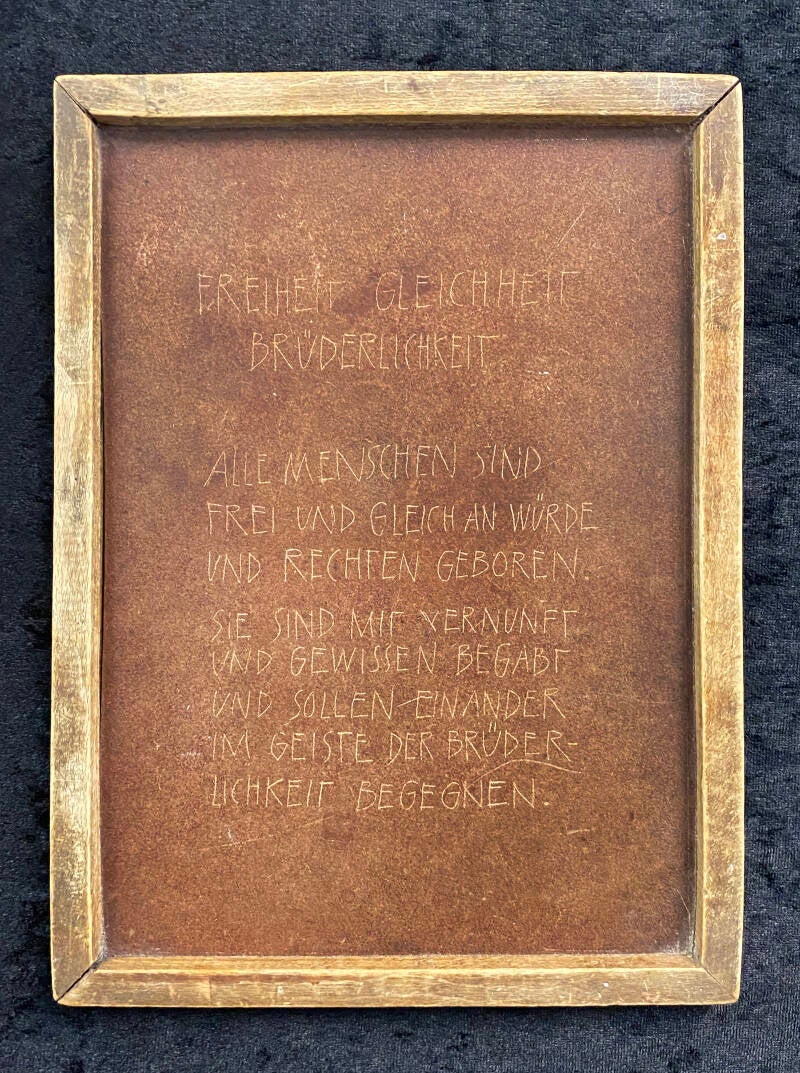 FREIHEIT GLEICHHEIT
BRÜDERLICHKEIT
ALLE MENSCHEN SIND
FREI UND GLEICH AN WÜRDE
UND RECHTEN GEBOREN.
SIE SIND MIT VERNUNFT
UND GEWISSEN BEGABT
UND SOLLEN EINANDER
IM GEISTE DER BRÜDER-
LICHKEIT BEGEGNEN.